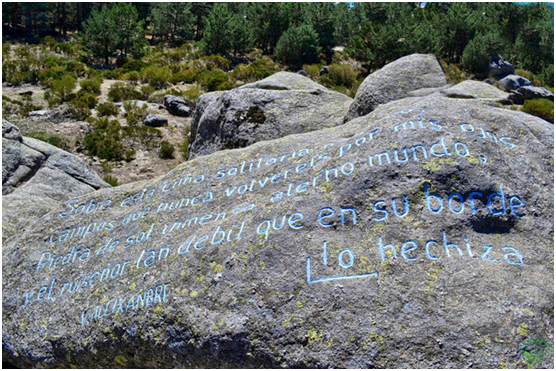 Sobre esta cima solitaria
campos que nunca volveréis por mis ojos
Piedra de sol inmensa eterno mundo,
y el ruiseñor tan debil que en su borde
lo hechiza
V. ALEIXANDRE